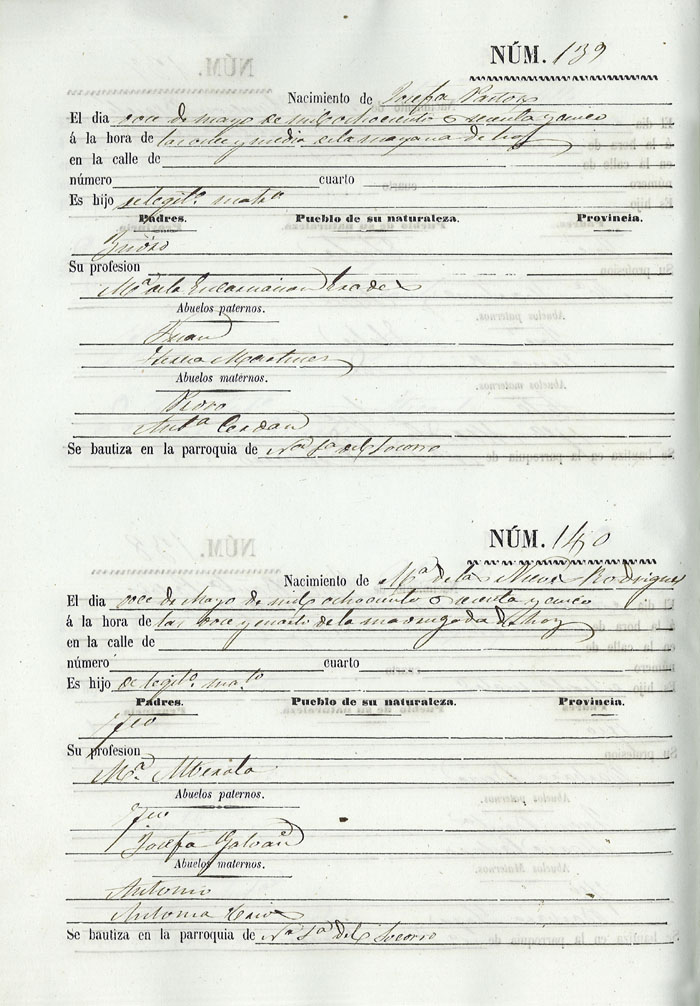 NÚM. 139
Nacimiento de Josefa Pastor
El dia doce de mayo de mil ochocientos sesenta y cinco
á la hora de las once y media de la mañana de hoy
en la calle de
número cuarto
Es hijo de legit.º mat.º
Padres. Pueblo de su naturaleza. Provincia.
Isidro
Su profesion
M.ª de la Encarnacion
Abuelos paternos.
Juan
Martinez
Abuelos maternos.
Pedro
Ant.ª Cerdan
Se bautiza en la parroquia de N.ª S.ª del Socorro
NÚM. 140
Nacimiento de M.ª de la Nieves Rodriguez
El dia doce de Mayo de mil ochocientos sesenta y cinco
á la hora de las doce y cuarto de la madrugada de hoy
en la calle de
número cuarto
Es hijo de legit.º mat.º
Padres. Pueblo de su naturaleza. Provincia.
Fco
Su profesion
M.ª Alberola
Abuelos paternos.
Fco
Josefa Galvañ
Abuelos maternos.
Antonio
Antonia
Se bautiza en la parroquia de N.ª S.ª del Socorro